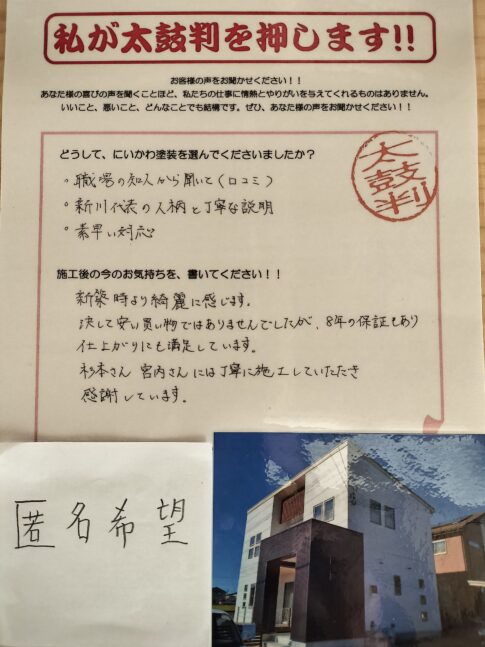 私が太鼓判を押します!!
お客様の声をお聞かせください！！
あなた様の喜びの声を聞くことほど、私たちの仕事に情熱とやりがいを与えてくれるものはありません。
いいこと、悪いこと、どんなことでも結構です。ぜひ、あなた様の声をお聞かせください！！
どうして、にいかわ塗装を選んでくださいましたか？
太鼓判
。職場の知人から聞いて(口コミ)
。新川代表の人柄と丁寧な説明
。素早い対応
施工後の今のお気持ちを、書いてください！！
新築時より綺麗に感じます。
決して安い買い物ではありませんでしたが、8年の保証もあり
仕上がりにも満足しています。
杉本さん 宮内さんには丁寧に施工していただき
感謝しています。
匿名希望